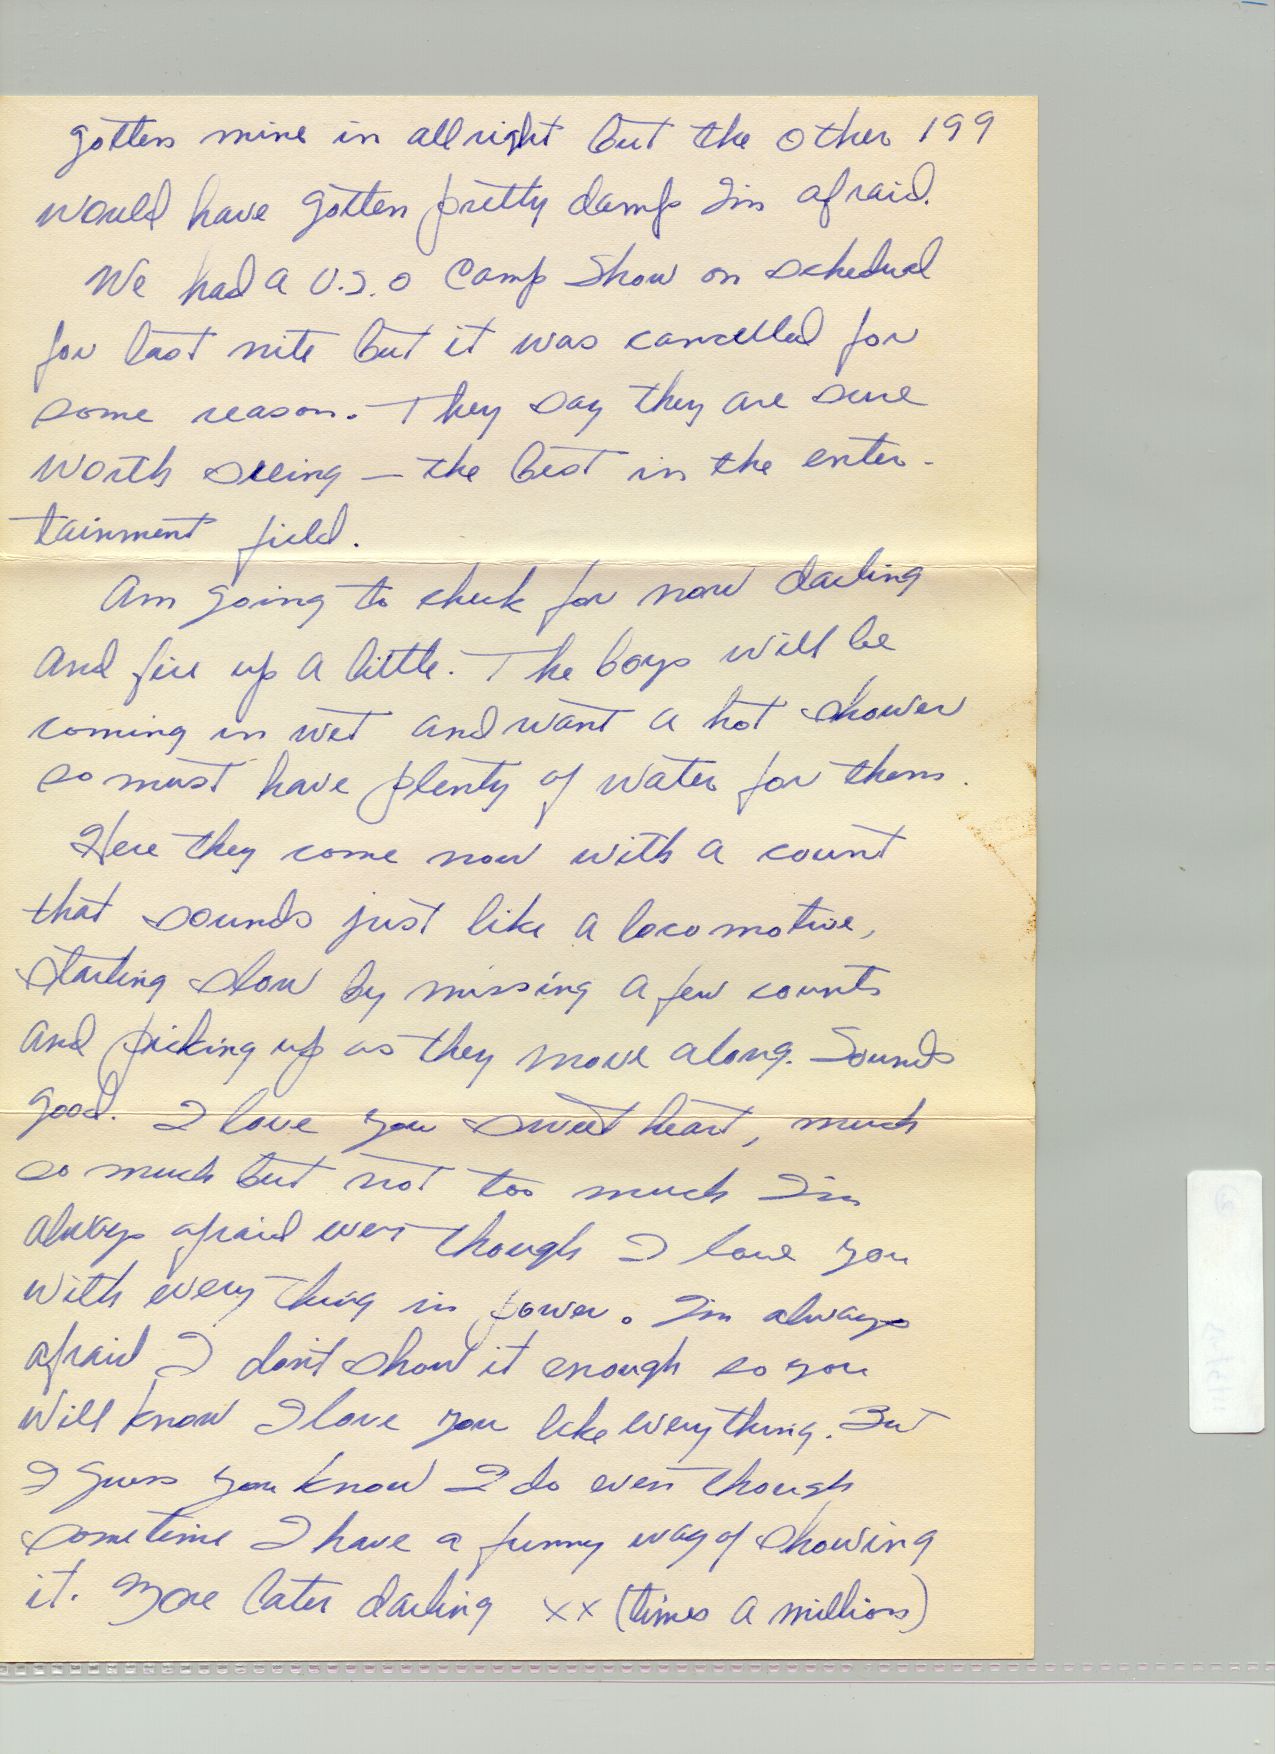 gotten mine in all right but the other 199
would have gotten pretty damp I'm afraid.
We had a U.S.O Camp Show on schedual
for last nite but it was cancelled for
some reason. They say they are sure
worth seeing — the best in the enter-
tainment field.
Am going to check for now darling
and fire up a little. The boys will be
coming in wet and want a hot shower
so must have plenty of water for them.
Here they come now with a count
that sounds just like a locomotive,
starting slow by missing a few counts
and picking up as they move along. Sounds
good. I love you sweet heart, much
so much but not too much I'm
always afraid even though I love you
with every thing in power. I'm always
afraid I don't show it enough so you
will know I love you like everything. But
I guess you know I do even though
sometime I have a funny way of showing
it. More later darling xx (times a million)